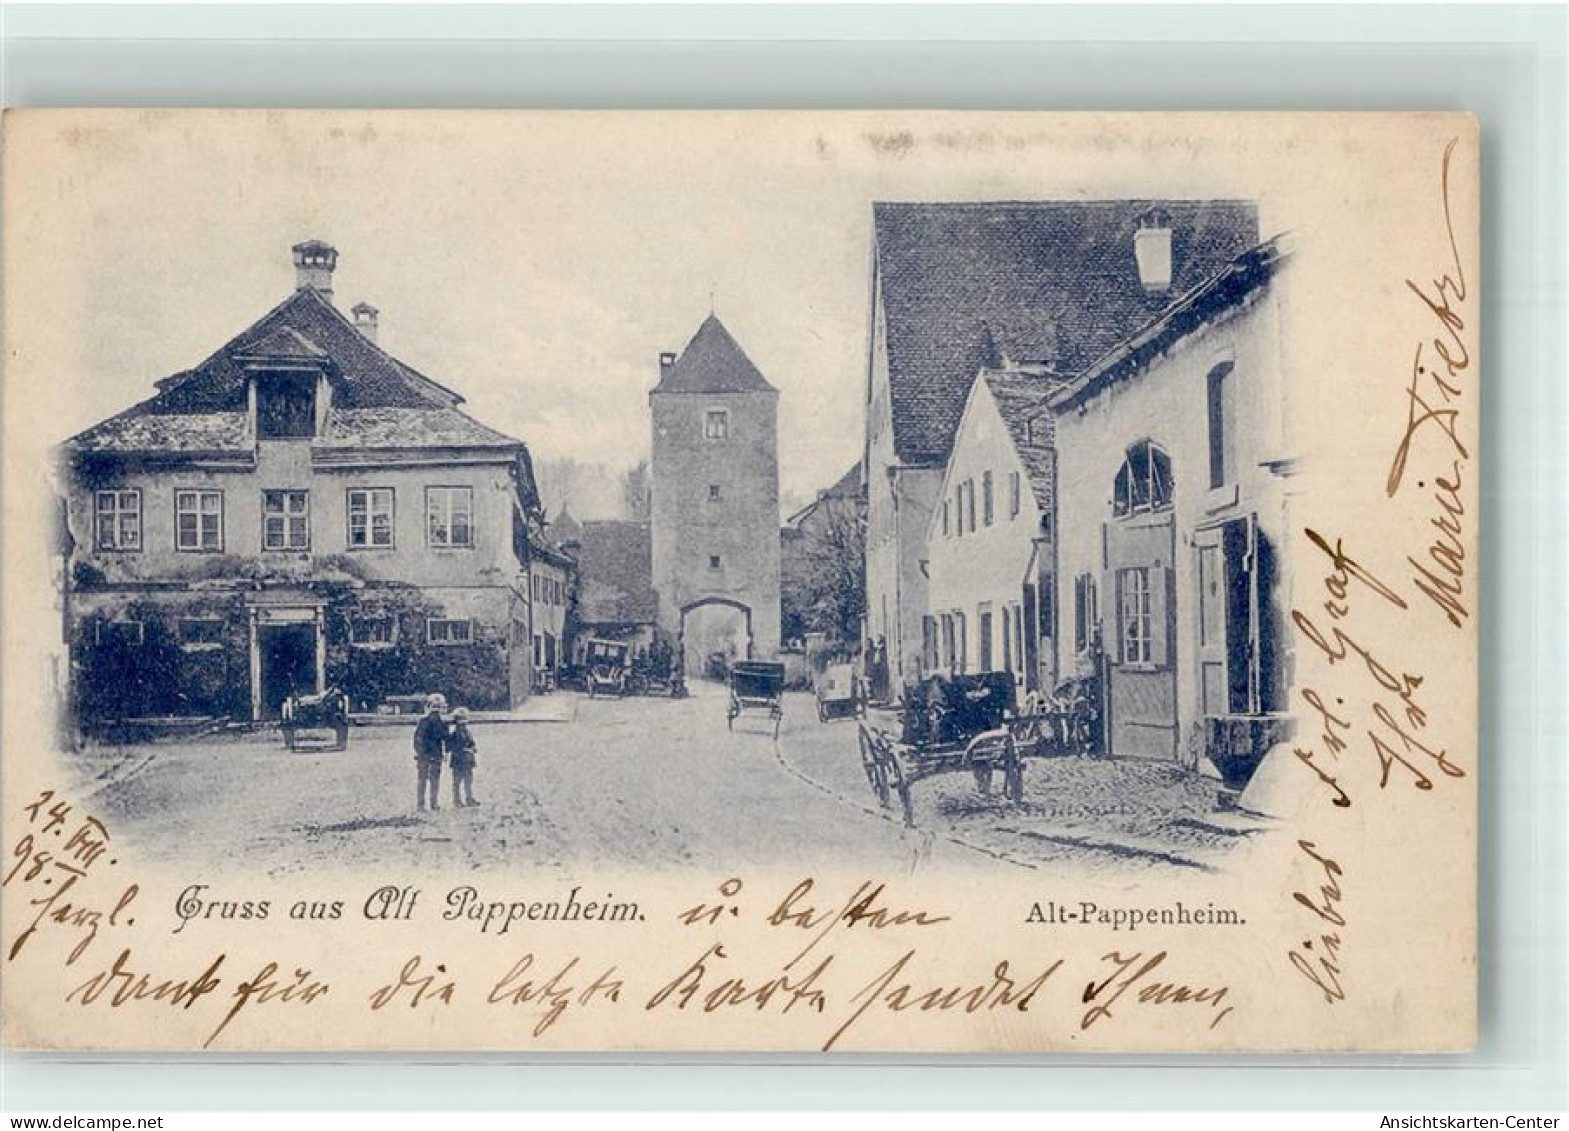 24. VIII.
98.
Gruss aus Alt Pappenheim.
Alt-Pappenheim.
herzl. u. besten
Dank für die letzte Karte sendet Ihnen,
liebes Frl. Graf
Ihre Marie Dietz
Ansichtskarten-Center